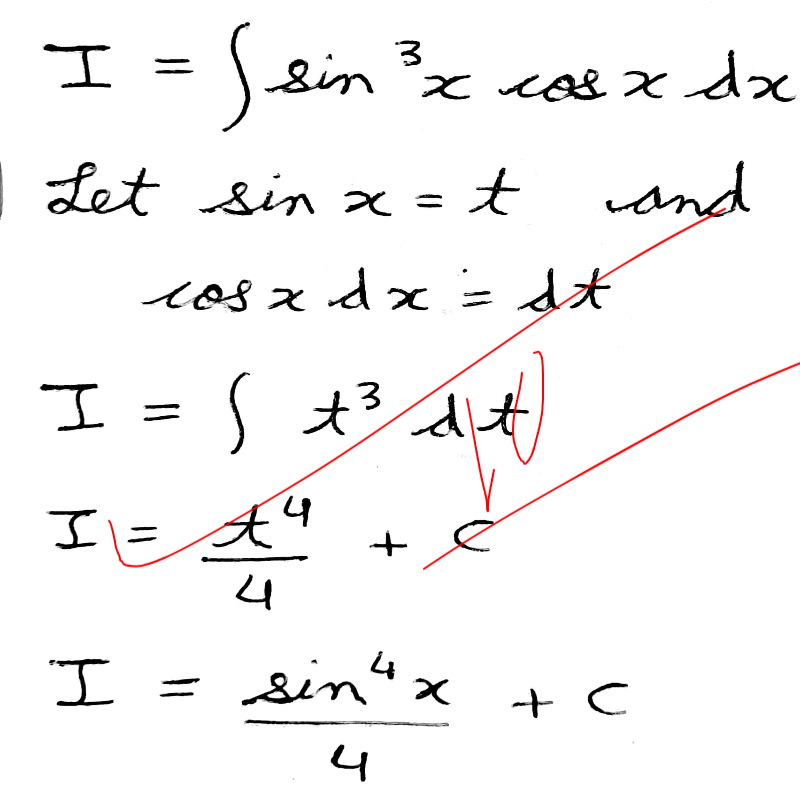 I = ∫ sin³x cos x dx
Let sin x = t and
cos x dx = dt
I = ∫ t³ dt
I = t⁴/4 + C
I = sin⁴x/4 + C